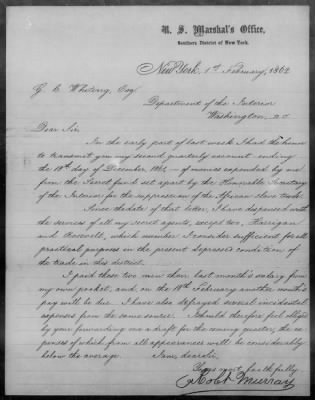 U. S. Marshal's Office,
Southern District of New York.
New York, 1st February, 1862
G. C. Whiting, Esq.
Department of the Interior
Washington, D.C.
Dear Sir,
In the early part of last week I had the honor
to transmit you my second quarterly account ending
the 18th day of December, 1861,- of moneys expended by me
from the Secret fund set apart by the Honorable Secretary
of the Interior for the suppression of the African Slave trade.
Since the date of that letter, I have dispensed with
the services of all my secret agents, except two, Harrigan
and Roswell, which number I consider sufficient for all
practical purposes in the present depressed condition of
the trade in this district.
I paid these two men their last month's salary from
my own pocket, and, on the 18th February another month's
pay will be due. I have also defrayed several incidental
expenses from the same source. I should therefore feel obliged
by your forwarding me a draft for the coming quarter, the ex-
penses of which from all appearances will be considerably
below the average. I am, dear sir,
Yours most faithfully
Robt Murray